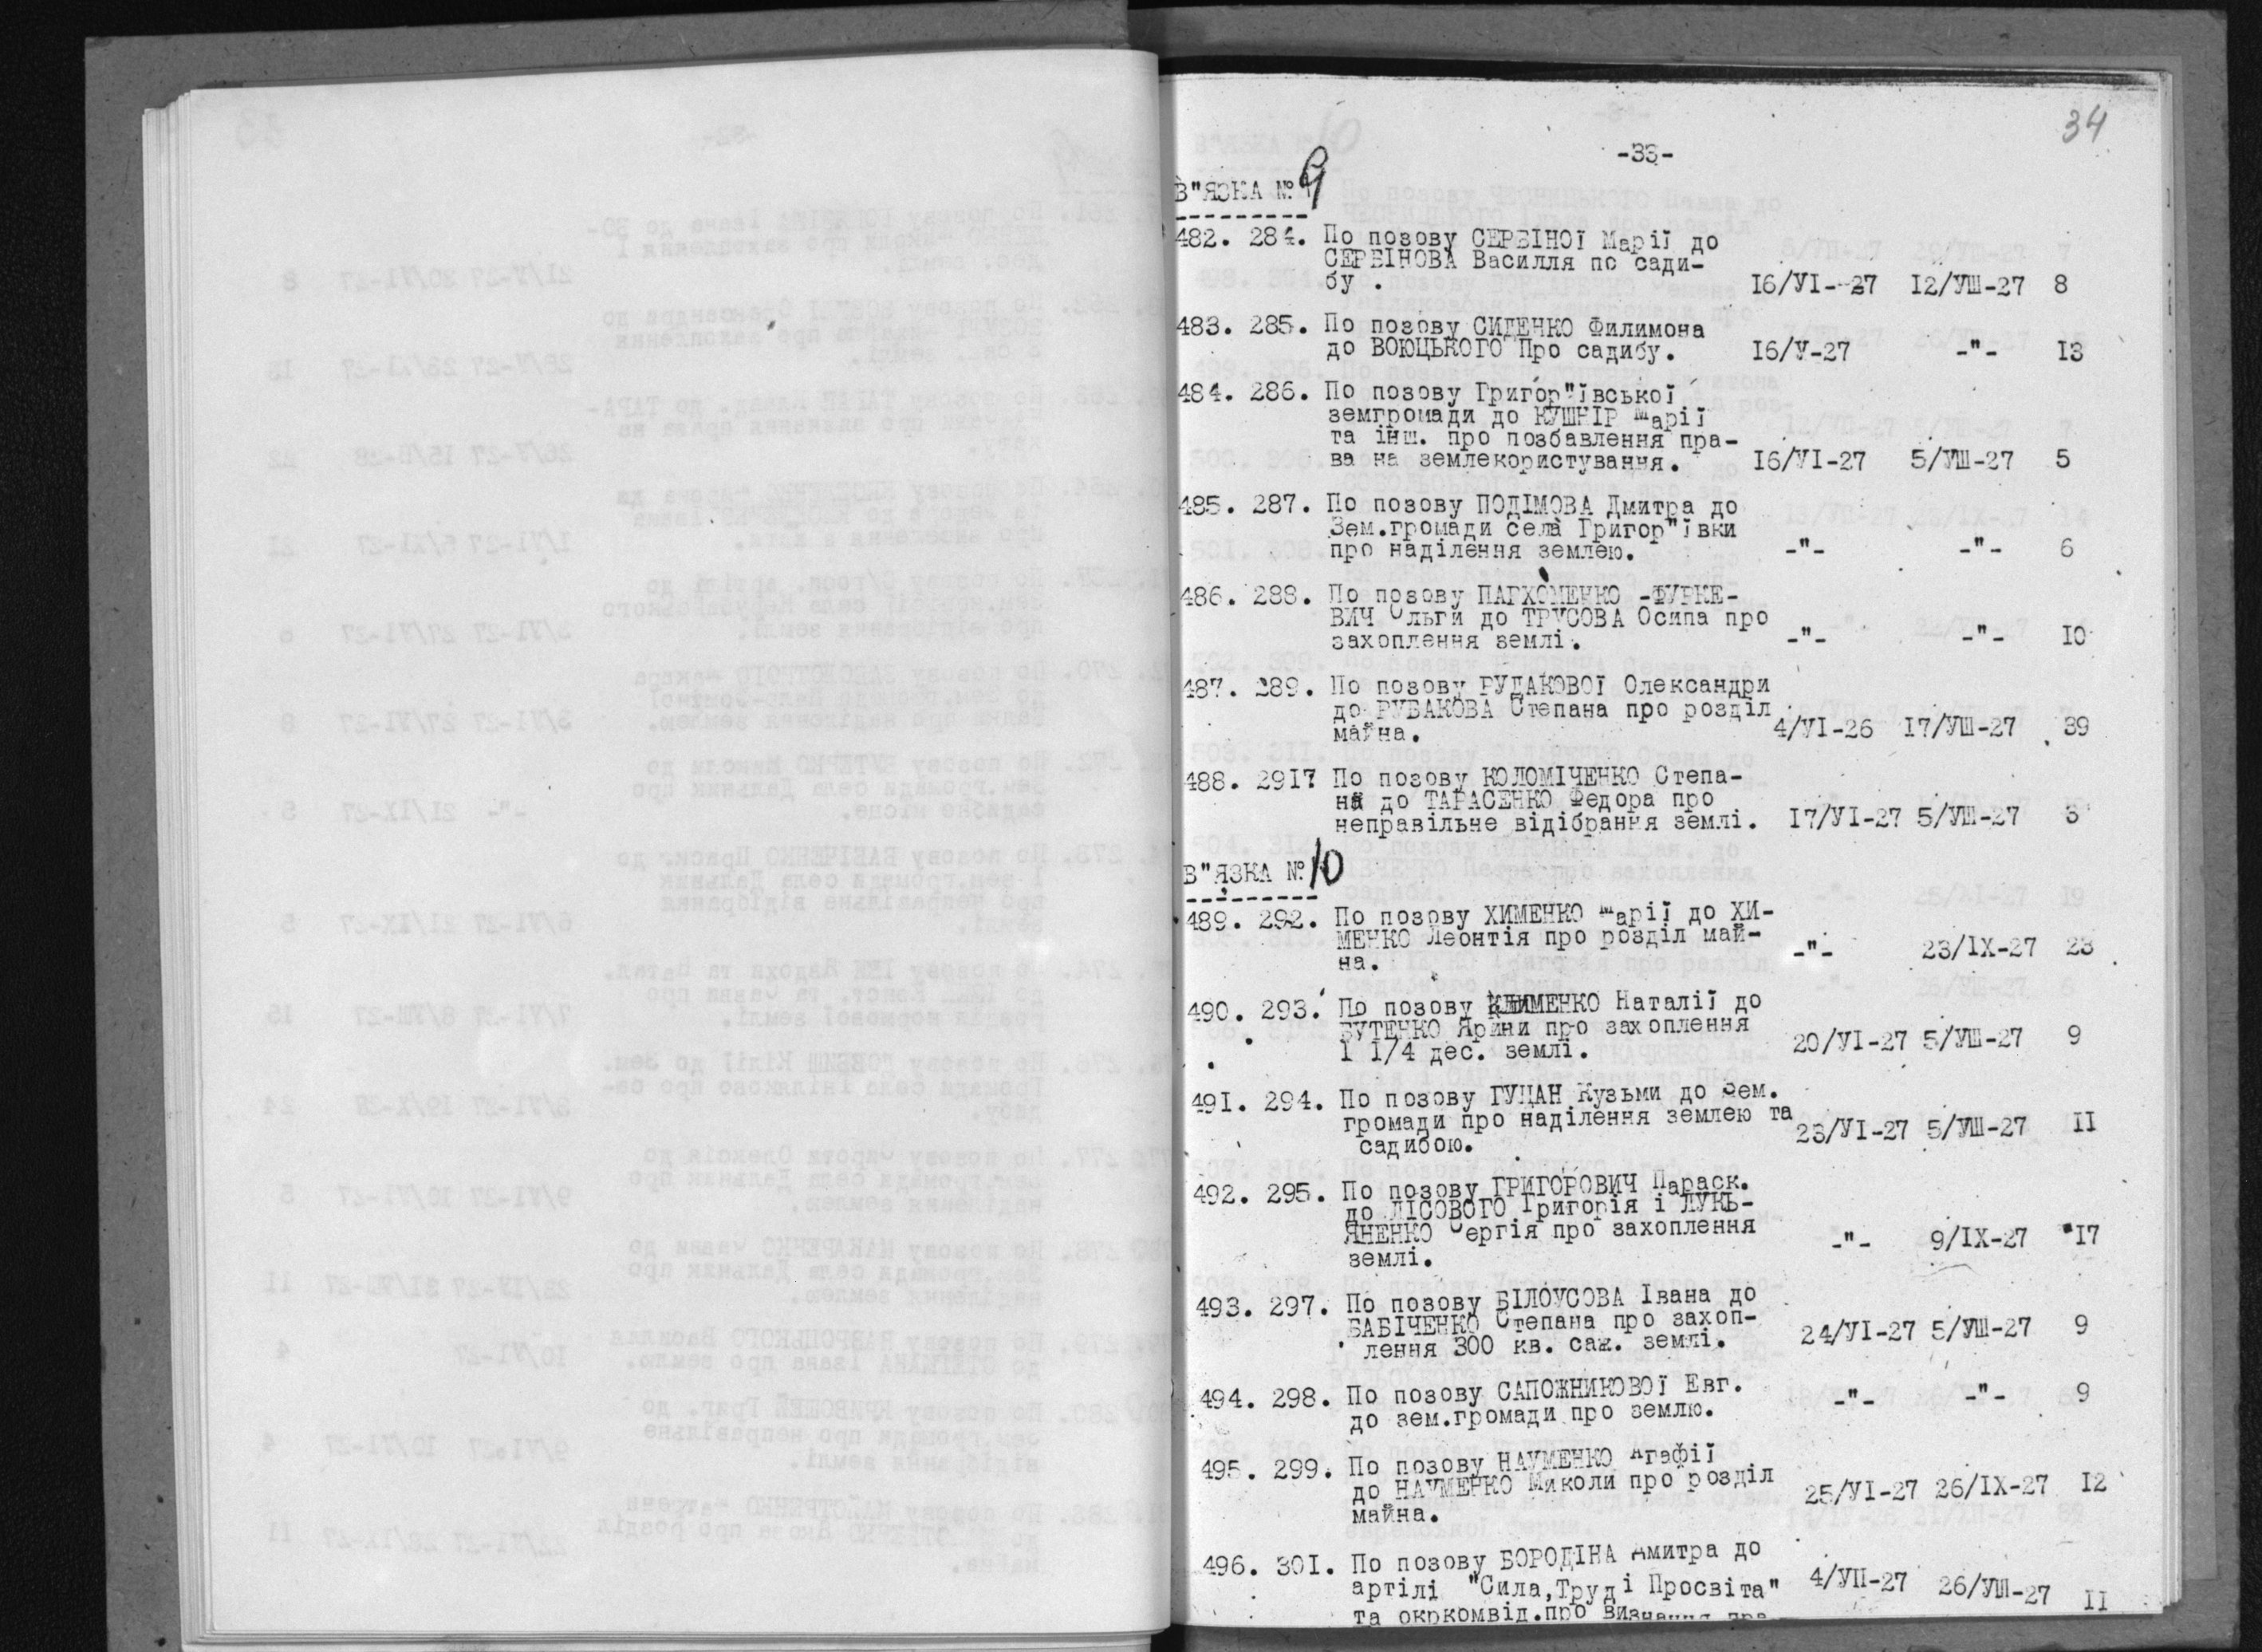 34
-33-
В"ЯЗКА № 9
482. 284. По позову СЕРБІНОЇ Марії до
СЕРБІНОВА Василля по сади-
бу . 16/УІ--27 12/УШ-27 8
483. 285. По позову СИДЕНКО Филимона
до ВОЮЦЬКОГО Про садибу. 16/У-27 -"- 13
484. 286. По позову Григор"ївської
земгромади до КУШНІР Марії
та інш. про позбавлення пра-
ва на землекористування. 16/УІ-27 5/УШ-27 5
485. 287. По позову ПОДІМОВА Дмитра до
Зем.громади села Григор"ївки
про наділення землею. -"- -"- 6
486. 288. По позову ПАРХОМЕНКО -ФУРКЕ-
ВИЧ Ольги до ТРУСОВА Осипа про
захоплення землі. -"- -"- 10
487. 289. По позову РУДАКОВОЇ Олександри
до РУБАКОВА Степана про розділ
майна. 4/УІ-26 17/УШ-27 39
488. 2917 По позову КОЛОМІЧЕНКО Степа-
на до ТАРАСЕНКО Федора про
неправільне відібрання землі. 17/УІ-27 5/УШ-27 3
В"ЯЗКА № 10
489. 292. По позову ХИМЕНКО Марії до ХИ-
МЕНКО Леонтія про розділ май-
на. -"- 23/ІХ-27 23
490. 293. По позову КЛИМЕНКО Наталії до
БУТЕНКО Ярини про захоплення
1 1/4 дес. землі. 20/УІ-27 5/УШ-27 9
491. 294. По позову ГУЦАН Кузьми до Зем.
громади про наділення землею та
садибою. 23/УІ-27 5/УШ-27 11
492. 295. По позову ГРИГОРОВИЧ Параск.
до ЛІСОВОГО Григорія і ЛУКЬ-
ЯНЕНКО Сергія про захоплення
землі. -"- 9/ІХ-27 17
493. 297. По позову БІЛОУСОВА Івана до
БАБІЧЕНКО Степана про захоп-
лення 300 кв. саж. землі. 24/УІ-27 5/УШ-27 9
494. 298. По позову САПОЖНИКОВОЇ Евг.
до зем.громади про землю. -"- -"- 9
495. 299. По позову НАУМЕНКО Агафії
до НАУМЕНКО Миколи про розділ
майна. 25/УІ-27 26/ІХ-27 12
496. 301. По позову БОРОДІНА Дмитра до
артілі "Сила,Труд і Просвіта" 4/УП-27 26/УШ-27 11
та окркомвід.про визнання пра-